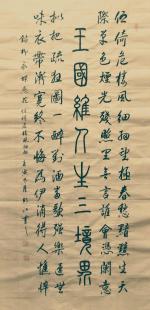 佇倚危樓風細細望極春愁黯黯生天
際草色煙光殘照里無言誰會憑闌意
王國維人生三境界
擬把疏狂圖一醉對酒當歌強樂還無
味衣帶漸寬終不悔為伊消得人憔悴